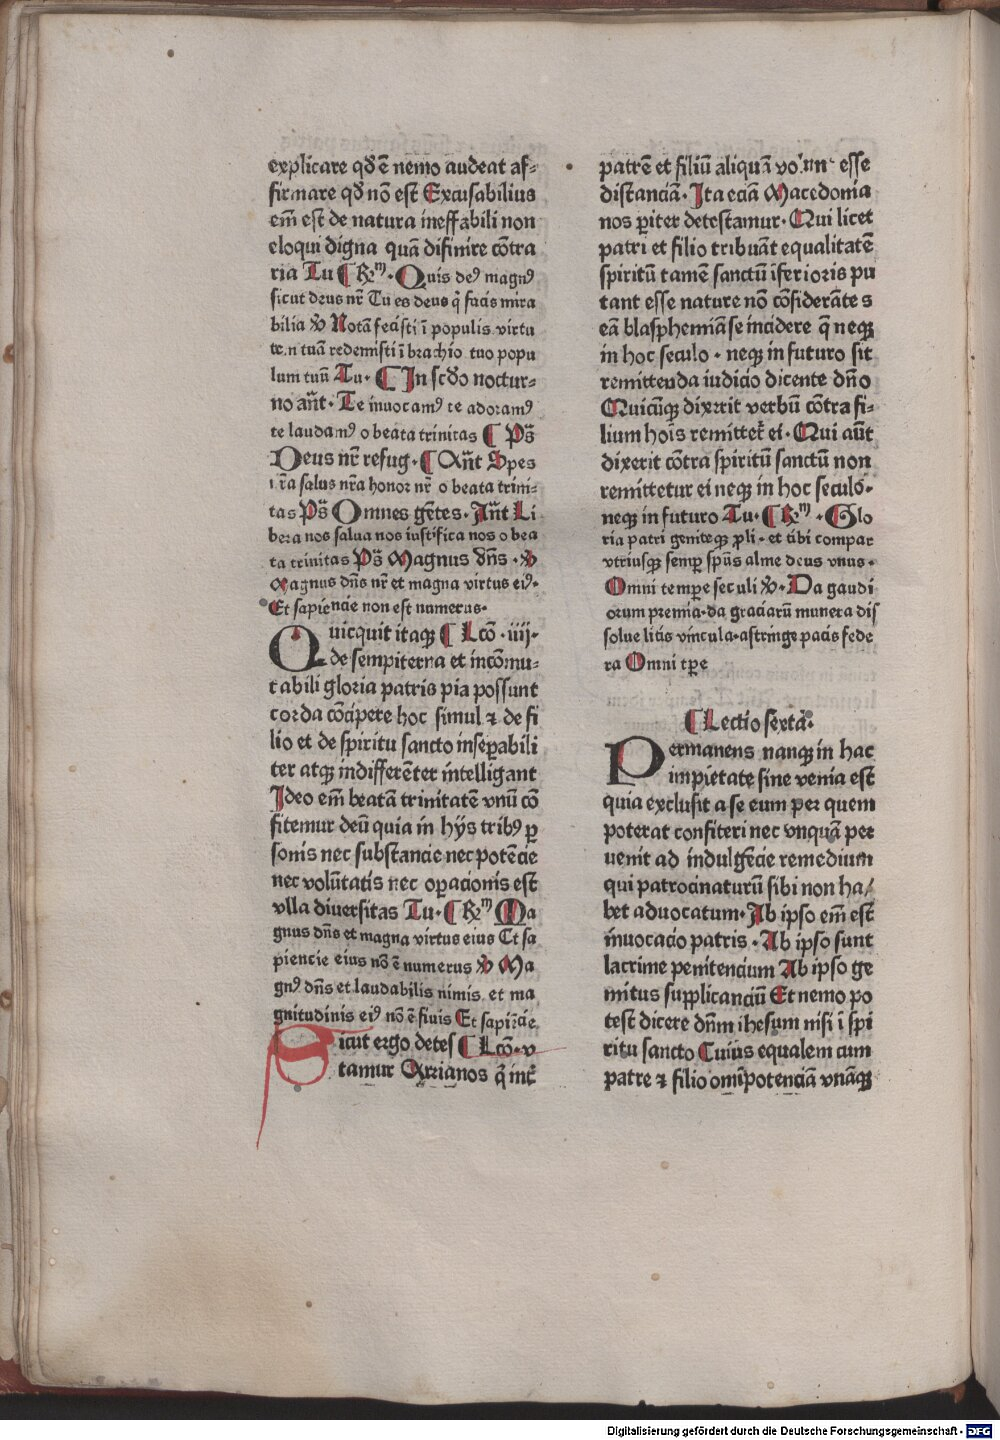 explicare qd̉ ē nemo audeat af⸗
firmare qd̉ nō est Excusabilius
em̄ est de natura ineffabili non
eloqui digna quā difinire cōtra
ria Tu ¶ R⁊m̄. Quis deꝰ magnꝰ
sicut deus nr̄ Tu es deus q̇ facis mira
bilia ꝟ Notā fecisti ī populis virtu
tem tuā redemisti ī brachio tuo popu
lum tuū Tu. ¶ In scd̉o noctur⸗
no an̄t. Te inuocamꝰ te adoramꝰ
te laudamꝰ o beata trinitas ¶ Ps̄
Deus nr̄ refug. ¶ An̄t Spes
nr̄a salus nr̄a honor nr̄ o beata trini⸗
tas Ps̄ Omnes gētes. An̄t Li
bera nos salua nos iustifica nos o bea
ta trinitas Ps̄ Magnus dn̄s. ꝟ
Magnus dn̄s nr̄ et magna virtus eiꝰ.
Et sapiencie non est numerus.
Quicquit itaqꝫ ¶ Lcō. iiij.
de sempiterna et incōmu⸗
tabili gloria patris pia possunt
corda cōcipere hoc simul ⁊ de fi
lio et de spiritu sancto insepabili
ter atqꝫ indifferēter intelligant
Ideo em̄ beatā trinitatē vnū cō
fitemur deū quia in hijs tribꝰ ꝑ
sonis nec substancie nec potēcie
nec volūtatis nec oꝑacionis est
vlla diuersitas Tu. ¶ R⁊m̄ Ma
gnus dn̄s et magna virtus eius Et sa
piencie eius nō ē numerus ꝟ Ma
gnꝰ dn̄s et laudabilis nimis et ma
gnitudinis eiꝰ nō ē finis Et sapiēcie
Sicut ergo detes ¶ Lcō. v
tamur Arrianos q̇ int̄
patrē et filiū aliquā volūt esse
distanciā. Ita eciā Macedonia
nos ꝑiter detestamur. Qui licet
patri et filio tribuāt equalitatē
spiritū tamē sanctū iferioris pu
tant esse nature nō cōfiderātes
eā blasphemiā se incidere q̄ neqꝫ
in hoc seculo. neqꝫ in futuro sit
remittenda iudicio dicente dn̄o
Quicūqꝫ dixerit verbū cōtra fi⸗
lium hoīs remittet̄ ei. Qui aūt
dixerit cōtra spiritū sanctū non
remittetur ei neqꝫ in hoc seculo.
neqꝫ in futuro Tu. ¶ R⁊m̄. Glo
ria patri geniteqꝫ ꝓli. et tibi compar
vtriusqꝫ semꝑ spūs alme deus vnus.
Omni tempe seculi ꝟ. Da gaudi
orum premia. da graciarū munera dis
solue litis vincula. astringe pacis fede
ra Omni tꝑe
¶ Lectio sexta.
Permanens nanqꝫ in hac
impietate sine venia est
quia exclusit a se eum per quem
poterat confiteri nec vnquā per
uenit ad indulgēcie remedium
qui patrocinaturū sibi non ha/
bet aduocatum. Ab ipso em̄ est
inuocacio patris. Ab ipso sunt
lacrime penitencium Ab ipso ge
mitus supplicanciū Et nemo po
test dicere dn̄m ihesum nisi ī spi
ritu sancto Cuius equalem cum
patre ⁊ filio omīpotenciā vnāqꝫ
Digitalisierung gefördert durch die Deutsche Forschungsgemeinschaft - DFG